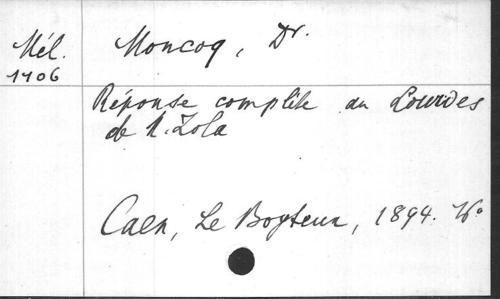 Mél.
1106
Moncoq, Dr.
Réponse complète au Lourdes
de M. Zola
Caen, Le Boyteux, 1894.